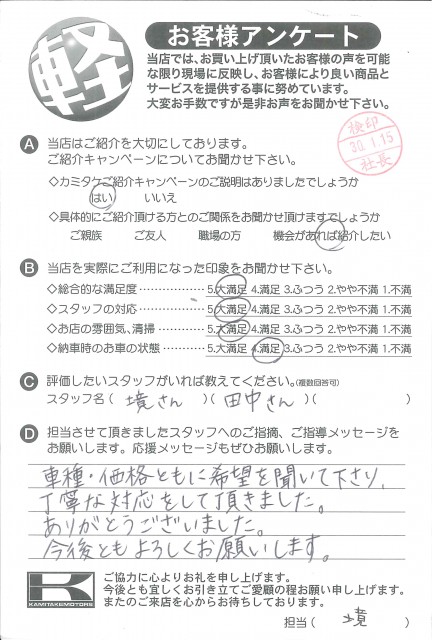 軽
お客様アンケート
当店では、お買い上げ頂いたお客様の声を可能
な限り現場に反映し、お客様により良い商品と
サービスを提供する事に努めています。
大変お手数ですが是非お声をお聞かせ下さい。
検印
30.1.15
社長
A 当店はご紹介を大切にしております。
ご紹介キャンペーンについてお聞かせ下さい。
◇カミタケご紹介キャンペーンのご説明はありましたでしょうか
はい いいえ
◇具体的にご紹介頂ける方とのご関係をお聞かせ頂けますでしょうか
ご親族 ご友人 職場の方 機会があれば紹介したい
B 当店を実際にご利用になった印象をお聞かせ下さい。
◇総合的な満足度・・・・・・・・・・・・5.大満足 4.満足 3.ふつう 2.やや不満 1.不満
◇スタッフの対応・・・・・・・・・・・・5.大満足 4.満足 3.ふつう 2.やや不満 1.不満
◇お店の雰囲気、清掃・・・・・・・・5.大満足 4.満足 3.ふつう 2.やや不満 1.不満
◇納車時のお車の状態・・・・・・・・5.大満足 4.満足 3.ふつう 2.やや不満 1.不満
C 評価したいスタッフがいれば教えてください。(複数回答可)
スタッフ名( 境さん )( 田中さん )( )
D 担当させて頂きましたスタッフへのご指摘、ご指導メッセージを
お願いします。応援メッセージもぜひお願いします。
車種・価格ともに希望を聞いて下さり、
丁寧な対応をして頂きました。
ありがとうございました。
今後ともよろしくお願いします。
KAMITAKEMOTORS
ご協力に心よりお礼を申し上げます。
今後とも宜しくお引き立てご愛顧の程お願い申し上げます。
またのご来店を心からお待ちしております。
担当( 境 )